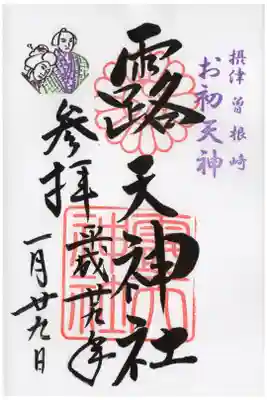 摂津 曽根崎
お初天神
露天神社
平成廿九年
参拝
一月廿九日